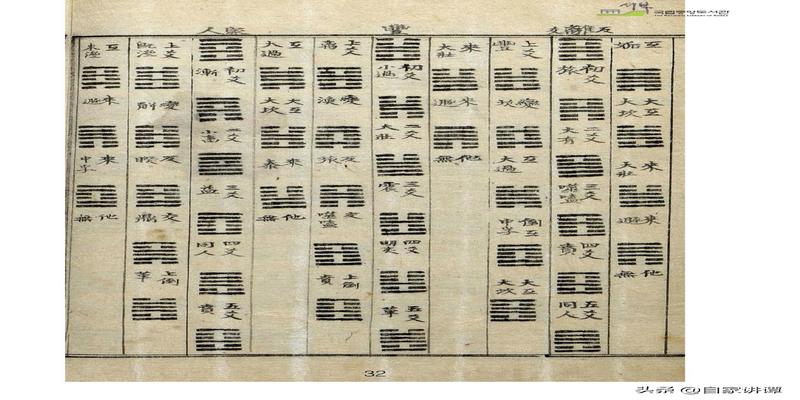 互
大互 大坎
來 大壯
來 遯
他 無
離
初爻 旅
二爻 大有
三爻 噬嗑
四爻 賁
五爻 同人
上爻 豐
變 坎
互 大過
倒互 中孚
大互 大坎
來 大壯
來 遯
他 無
豐
初爻 小過
二爻 大壯
三爻 震
四爻 明夷
五爻 革
上爻 離
變 渙
反 旅
交 噬嗑
上倒 賁
互 大過
大互 大坎
來 泰
他 無
家人
初爻 漸
二爻 小畜
三爻 益
四爻 同人
五爻 賁
上爻 既濟
變 解
反 睽
交 鼎
上倒 革
互 未濟
來 遯
來 中孚
他 無
32
국립중앙도서관
THE NATIONAL LIBRARY OF KOREA
头条 @自家讲谭